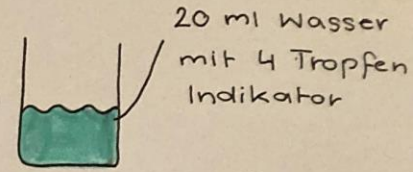 20 ml Wasser
mit 4 Tropfen
Indikator